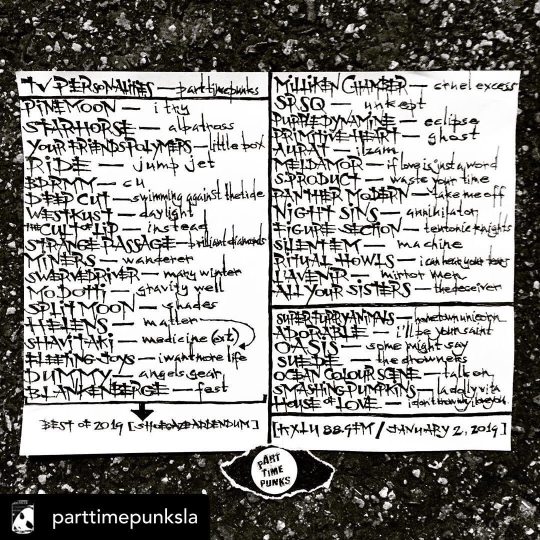 TV PERSONALITIES — part time punks
PINEMOON — i try
STARHORSE — albatross
YOUR FRIENDS POLYMERS — little box
RIDE — jump jet
BDRMM — cu
DEEP CUT — swimming against the tide
WESTKUST — daylight
THE CULT OF LIP — instead
STRANGE PASSAGE — brilliant diamonds
MINERS — wanderer
SWERVEDRIVER — mary winter
MODOTTI — gravity well
SPLIT MOON — shades
HELENS — matter
SHAVI TAKI — medicine (ext)
FLEETING JOYS — i want more life
DUMMY — angels gear
BLANKENBERGE — fest
BEST OF 2019 [SHOEGAZE ADDENDUM]
MILLIKEN CHAMBER — cruel excess
SRSQ — unkept
PURPLE DYNAMINE — eclipse
PRIMITIVE HEART — ghost
AURAT — ilzam
MELDAMOR — if love is just a word
S. PRODUCT — waste your time
PANTHER MODERN — take me off
NIGHT SINS — annihilator
FIGURE SECTION — teutonic knights
SILENT EM — machine
RITUAL HOWLS — i can hear your tears
L'AVENIR — mirror men
ALL YOUR SISTERS — the deceiver
SUPER FURRY ANIMALS — hometown unicorn
ADORABLE — i'll be your saint
OASIS — some might say
SUEDE — the drowners
OCEAN COLOUR SCENE — talk on
SMASHING PUMPKINS — la dolly vita
HOUSE OF LOVE — i don't know why i love you
[KXLU 88.9FM / JANUARY 2, 2019]
PART
TIME
PUNKS
parttimepunksla